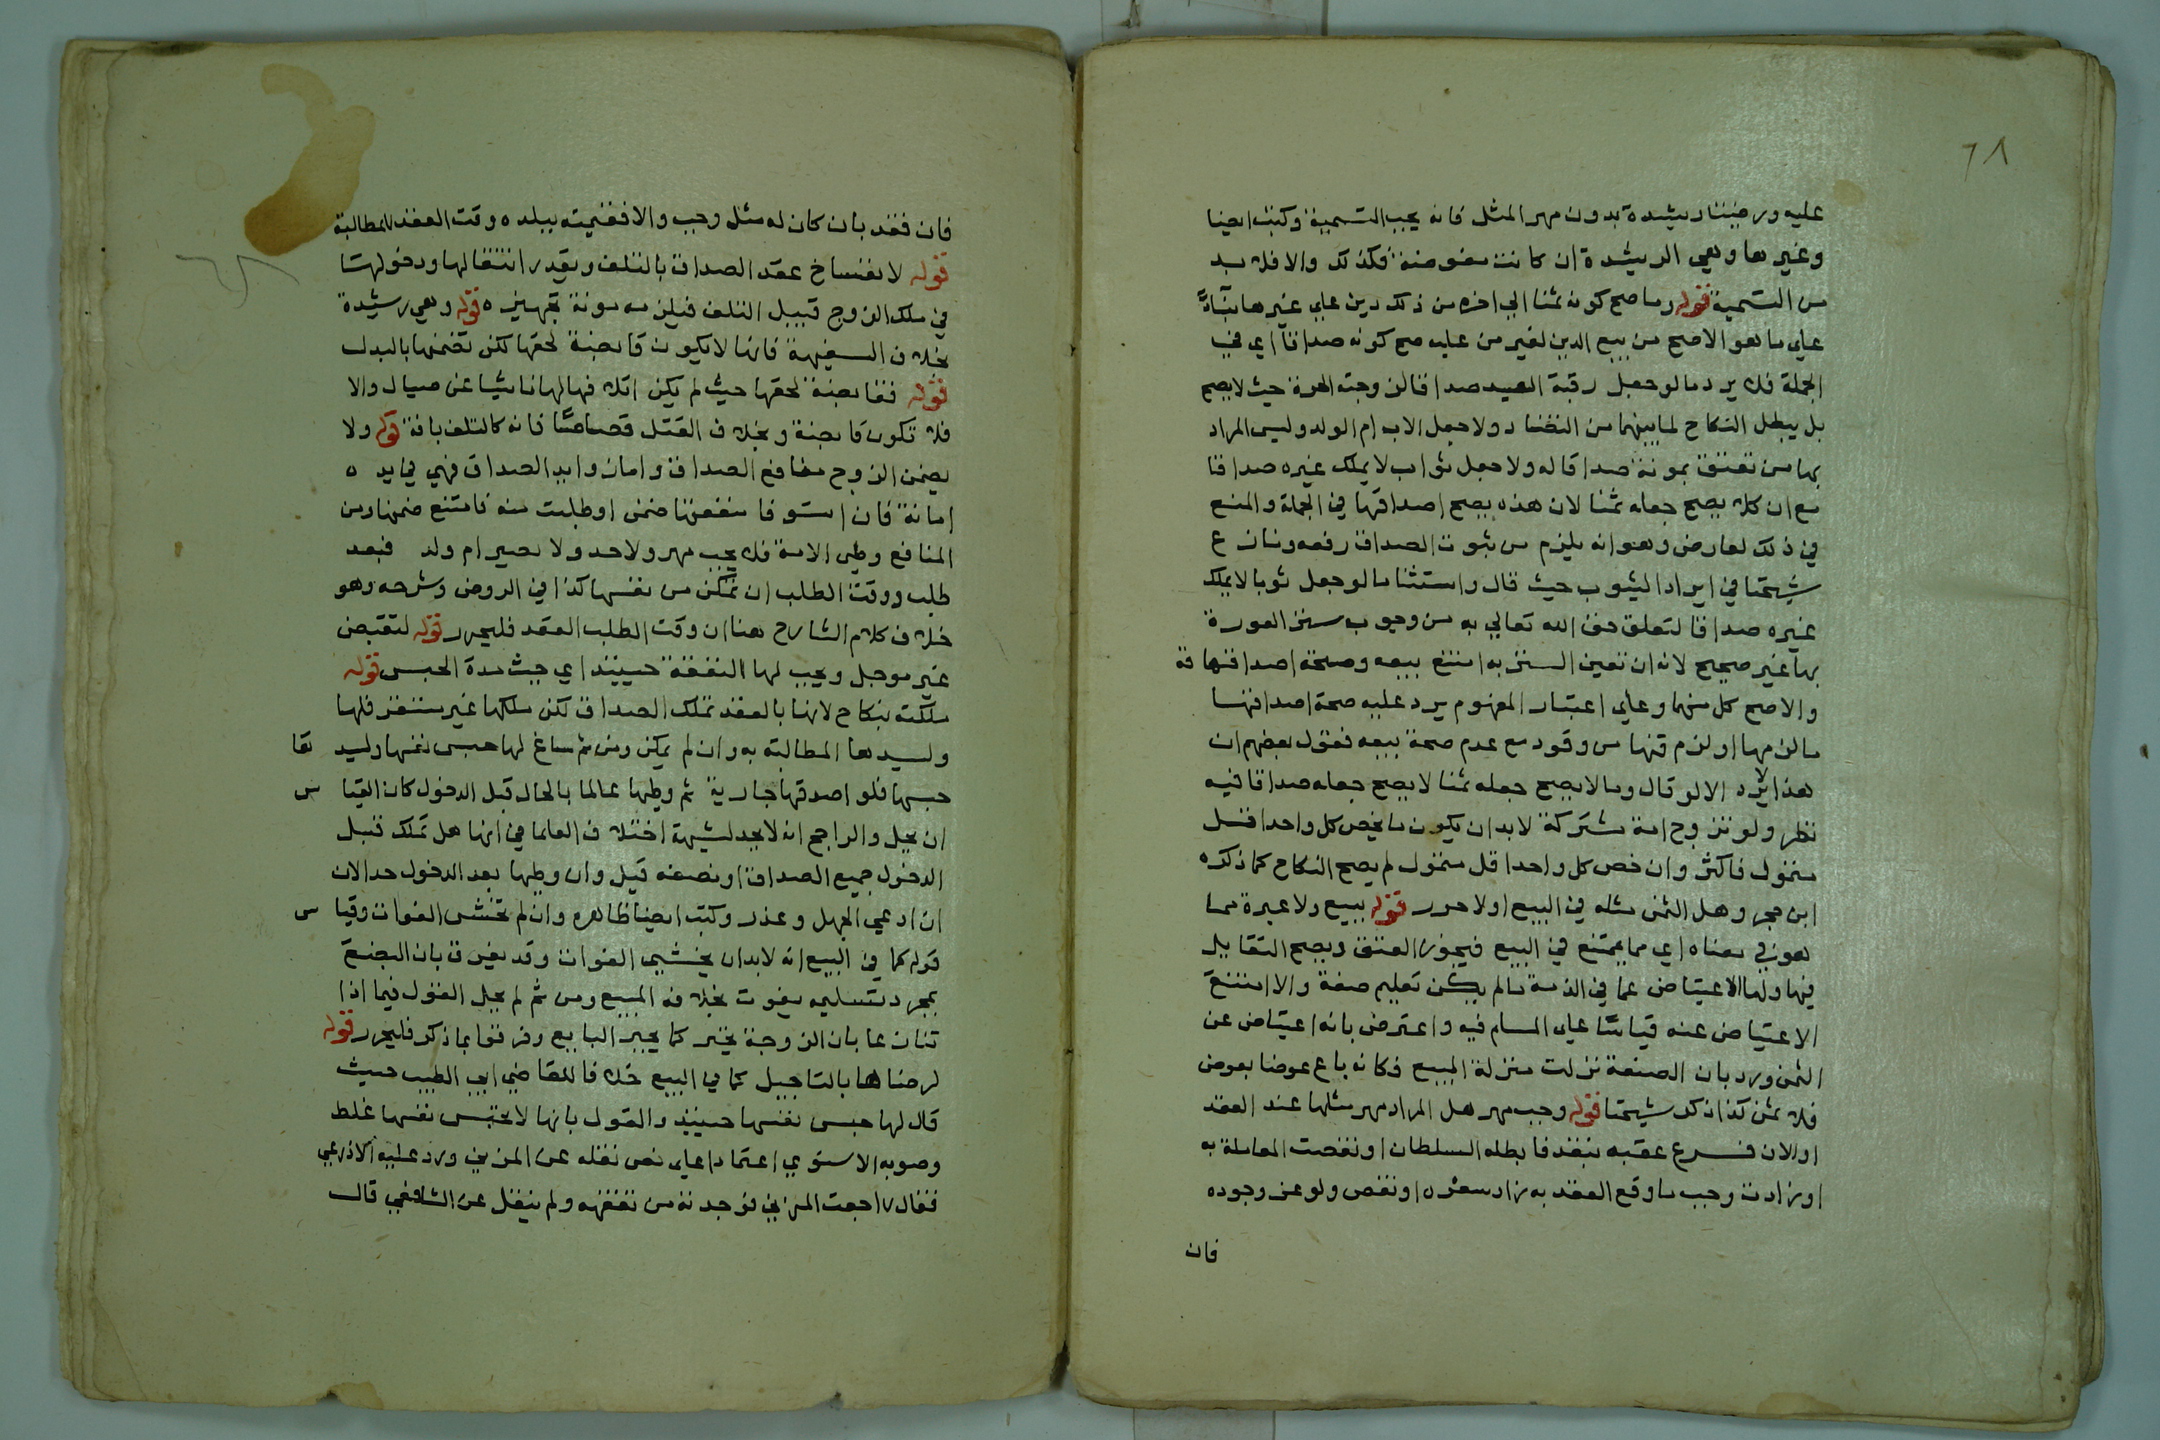 ٦٨
عليه ورضيتا رشيدة بدون مهر المثل فانه يجب التسمية وكتب ايضا
وغيرها وهي الرشيدة ان كانت مفوضة فكذلك والا فلا بد
من التسمية قوله وما صح كونه ثمنا الى اخره من ذلك دين علي غيرها بناءً
علي ما هو الاصح من بيع الدين لغير من عليه صح كونه صداقا اي في
الجملة فلا يرد ما لو جعل رقبة العبد صداقا لزوجته الحرة حيث لا يصح
بل يبطل النكاح لما بينهما من التضاد ولا جعل الاب ام الولد وليس المراد
بها من تعتق بموته صداقا له ولا جعل ثواب لا يملك غيره صداقا
مع ان كلا يصح جعله ثمنا لان هذه يصح اصداقها في الجملة والمنع
في ذلك لعارض وهو انه يلزم من ثبوت الصداق رفعه ونازع
شيخنا في ايراد الثوب حيث قال واستثنا ما لو جعل ثوبا لا يملك
غيره صداقا لتعلق حق الله تعالي به من وجوب ستر العورة
بها غير صحيح لانه ان تعين الستر به امتنع بيعه وصحة اصداقها قة
والاصح كل منهما وعلي اعتبار المفهوم يرد عليه صحة اصداقها
ما لزمها او لزم قنها من وقود مع عدم صحة بيعه فقول بعضهم ان
هذا لا يرد الا لو قال وما لا يصح جعله ثمنا لا يصح جعله صداقا فيه
نظر ولو تزوج امة مشتركة لا بد ان يكون ما يخص كل واحد اقل
متمول فاكثر وان خص كل واحد اقل متمول لم يصح النكاح كما ذكره
ابن حجر وهل الثمن مثله في البيع اولا حرر قوله ببيع ولا عبرة مما
هو في معناه اي مما يمتنع في البيع فيجوز العتق ويصح التقايل
فيها ولها الاعتياض عما في الذمة ما لم يكن تعليم صنعة والا امتنع
الاعتياض عنه قياسًا علي المسلم فيه واعترض بانه اعتياض عن
الثمن ورد بان الصنعة نزلت منزلة المبيع فكانه باع عوضا بعوض
فلا ثمن كذا ذكر شيخنا قوله وجب مهر هل المراد مهر مثلها عند العقد
او الان فرع عقبه بنقد فابطله السلطان او نقصت المعاملة به
او زادت وجب ما وقع العقد به زاد سعره او نقص ولو عز وجوده
فان
فان فقد بان كان له مثل وجب والا فقيمته ببلده وقت العقد للمطالبة
قوله لانفساخ عقد الصداق بالتلف ويقدر انتقالها ودخولها
في ملك الزوج قبيل التلف فيلزمه مونة تجهيزه قوله وهي رشيدة
بخلاف السفيهة فانها لا يكون قابضة لحقها لكن تضمنها بالبدل
قوله فقابضة لحقها حيث لم يكن اتلافها لها ناشيا عن صيال والا
فلا تكون قابضة وبخلاف القتل قصاصًا فانه كالتلف بافة قوله ولا
يضمن الزوج منافع الصداق وامازوايد الصداق فهي في يده
امانة فان استوفا منفعتها ضمن او طلبت منه فامتنع ضمنها ومن
المنافع وطي الامة فلا يجب مهر ولا حد ولا تصير ام ولد فبعد
طلب ووقت الطلب ان تمكن من نفسها كذا في الروض وشرحه وهو
خلاف كلام الشارح هنا ان وقت الطلب العقد فليحرر قوله لتقبض
غير موجل ويجب لها النفقة حينئذ اي حيث مدة الحبس قوله
ملكته بنكاح لانها بالعقد تملك الصداق لكن ملكها غير مستقر فلها
ولسيدها المطالبة به وان لم يمكن ومن ثم ساغ لها حبس نفسها ولسيدها
حبسها فلو اصدقها جارية ثم وطيها عالما بالحال قبل الدخول كان القياس
ان يحل والراجح انه لا يحد لشبهة اختلاف العلما في انها هل تملك قبل
الدخول جميع الصداق او نصفه قيل وان وطيها بعد الدخول حد الا ان
ان ادعي الجهل وعذر وكتب ايضا ظاهره وان لم تخش الفوات وقياس
قوله كما في البيع انه لا بدان يخشي الفوات وقد يفرق بان البضع
بمجرد تسليمه يفوت بخلاف المبيع ومن ثم لم يحل القول فيما اذا
تنازعا بان الزوجة تخير كما يجبر البايع وفرقوا بما ذكر فليحرر قوله
لرضاها بالتاجيل كما في البيع خلافا للقاضي ابي الطيب حيث
قال لها حبس نفسها حينئذ والقول بانها لا تحبس نفسها غلط
وصوبه الاسنوي اعتمادا علي نص نقله عن المزني ورد عليه الاذرعي
فقال راجعت المزني فوجدته من تفقهه ولم ينقل عن الشافعي قال